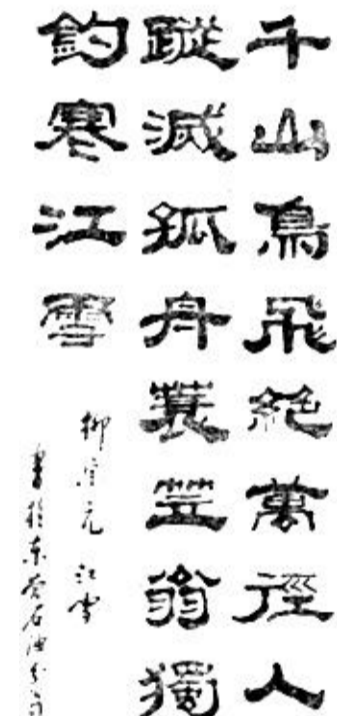 千山鳥飛絕萬徑人
蹤滅孤舟蓑笠翁獨
釣寒江雪
柳宗元 江雪
書於东营石油分司